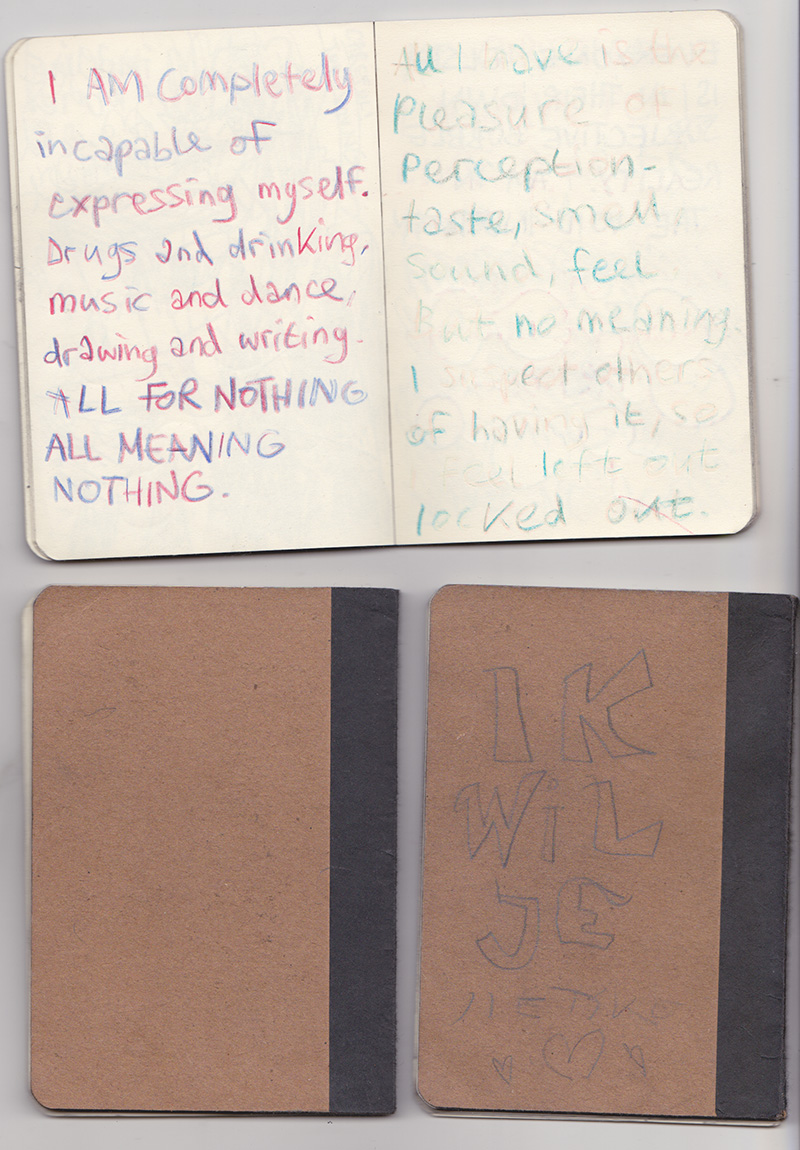 I AM Completely
incapable of
expressing myself.
Drugs and drinking,
music and dance,
drawing and writing.
ALL FOR NOTHING
ALL MEANING
NOTHING.
All I have is the
Pleasure of
Perception-
taste, smell
Sound, feel
But no meaning.
I suspect others
of having it, so
I feel left out
locked out.
IK
WiL
JE